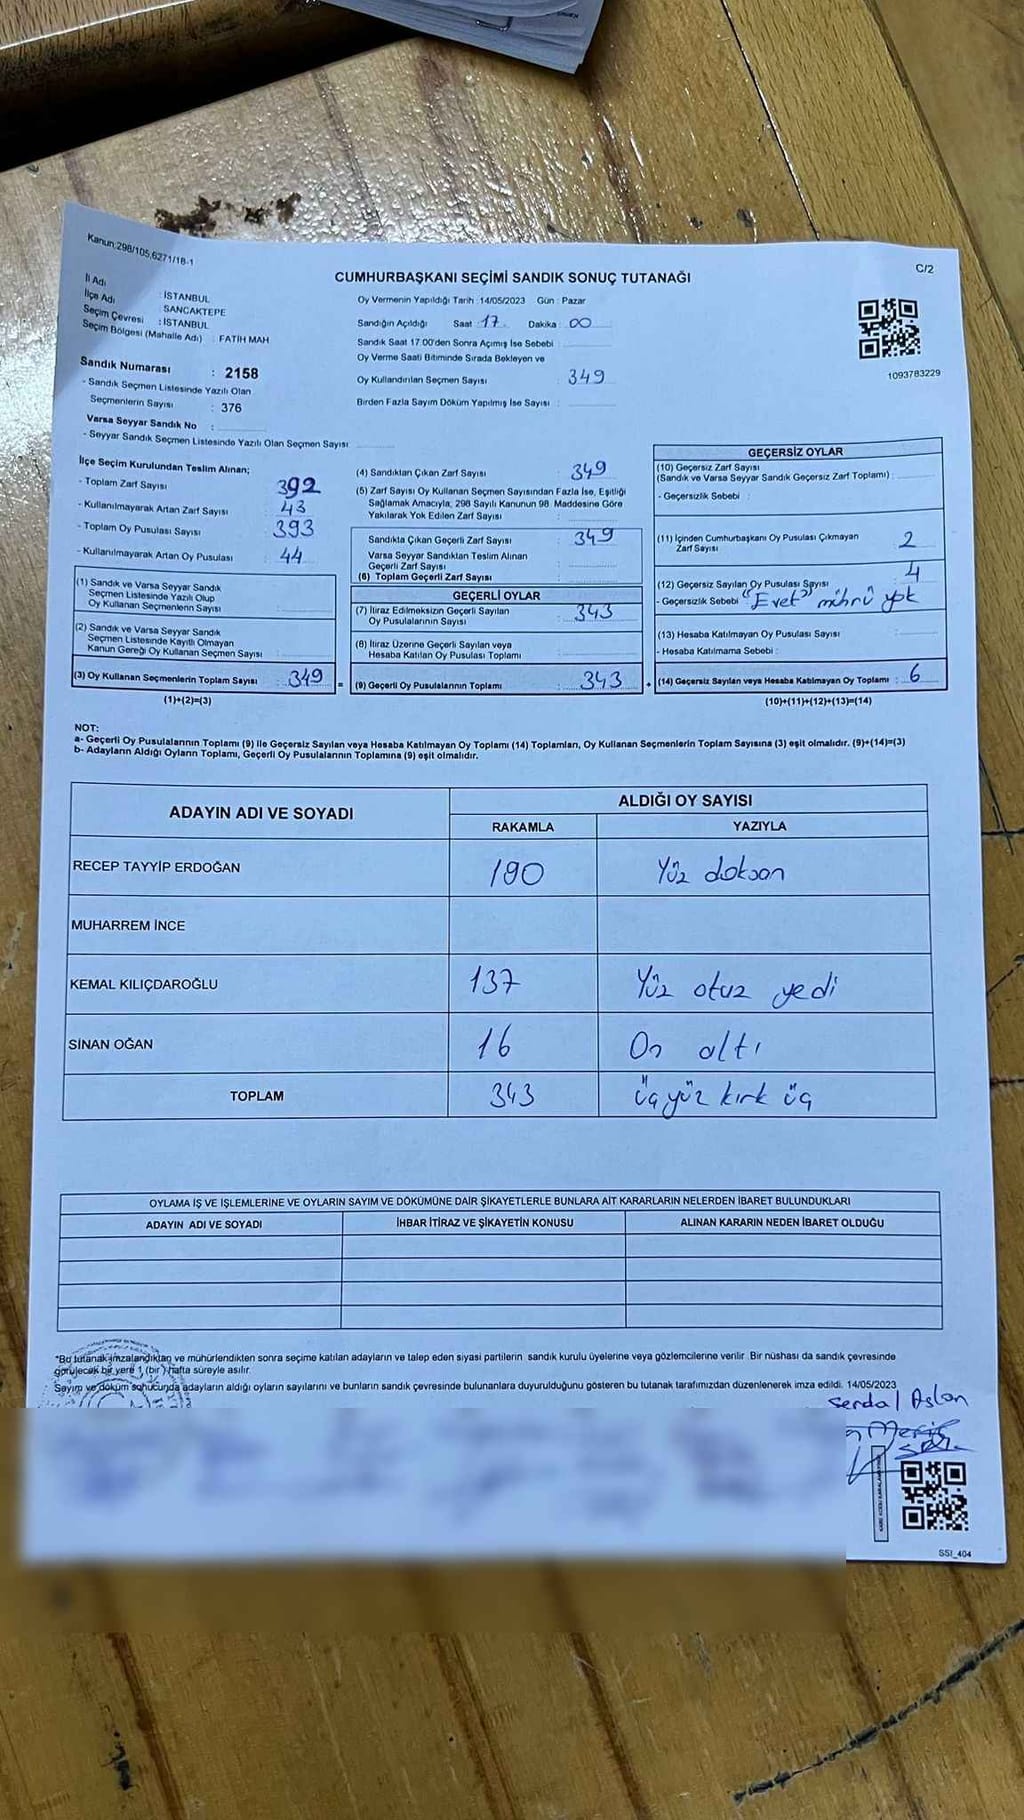 Kanun:298/105,6271/18-1
C/2
CUMHURBAŞKANI SEÇİMİ SANDIK SONUÇ TUTANAĞI
İl Adı : İSTANBUL
İlçe Adı SANCAKTEPE
Seçim Çevresi : İSTANBUL
Seçim Bölgesi (Mahalle Adı) : FATİH MAH
Oy Vermenin Yapıldığı Tarih :14/05/2023 Gün : Pazar
Sandığın Açıldığı Saat :17 Dakika :00
Sandık Saat 17.00'den Sonra Açımış İse Sebebi :
Oy Verme Saati Bitiminde Sırada Bekleyen ve
Oy Kullandırılan Seçmen Sayısı : 349
Birden Fazla Sayım Döküm Yapılmış İse Sayısı :
1093783229
Sandık Numarası : 2158
- Sandık Seçmen Listesinde Yazılı Olan
Seçmenlerin Sayısı : 376
Varsa Seyyar Sandık No :
- Seyyar Sandık Seçmen Listesinde Yazılı Olan Seçmen Sayısı
İlçe Seçim Kurulundan Teslim Alınan;
- Toplam Zarf Sayısı 392
- Kullanılmayarak Artan Zarf Sayısı : 43
- Toplam Oy Pusulası Sayısı 393
- Kullanılmayarak Artan Oy Pusulası 44
(1) Sandık ve Varsa Seyyar Sandık
Seçmen Listesinde Yazılı Olup
Oy Kullanan Seçmenlerin Sayısı :
(2) Sandık ve Varsa Seyyar Sandık
Seçmen Listesinde Kayıtlı Olmayan
Kanun Gereği Oy Kullanan Seçmen Sayısı :
(3) Oy Kullanan Seçmenlerin Toplam Sayısı : 349 =
(1)+(2)=(3)
(4) Sandıktan Çıkan Zarf Sayısı : 349
(5) Zarf Sayısı Oy Kullanan Seçmen Sayısından Fazla İse, Eşitliği
Sağlamak Amacıyla; 298 Sayılı Kanunun 98. Maddesine Göre
Yakılarak Yok Edilen Zarf Sayısı :
Sandıkta Çıkan Geçerli Zarf Sayısı : 349
Varsa Seyyar Sandıktan Teslim Alınan
Geçerli Zarf Sayısı :
(6) Toplam Geçerli Zarf Sayısı :
GEÇERLİ OYLAR
(7) İtiraz Edilmeksizin Geçerli Sayılan
Oy Pusulalarının Sayısı : 343
(8) İtiraz Üzerine Geçerli Sayılan veya
Hesaba Katılan Oy Pusulası Toplamı :
(9) Geçerli Oy Pusulalarının Toplamı : 343 +
GEÇERSİZ OYLAR
(10) Geçersiz Zarf Sayısı
(Sandık ve Varsa Seyyar Sandık Geçersiz Zarf Toplamı) :
- Geçersizlik Sebebi :
(11) İçinden Cumhurbaşkanı Oy Pusulası Çıkmayan
Zarf Sayısı : 2
(12) Geçersiz Sayılan Oy Pusulası Sayısı : 4
- Geçersizlik Sebebi "Evet" mührü yok
(13) Hesaba Katılmayan Oy Pusulası Sayısı :
- Hesaba Katılmama Sebebi :
(14) Geçersiz Sayılan veya Hesaba Katılmayan Oy Toplamı : 6
(10)+(11)+(12)+(13)=(14)
NOT:
a- Geçerli Oy Pusulalarının Toplamı (9) ile Geçersiz Sayılan veya Hesaba Katılmayan Oy Toplamı (14) Toplamları, Oy Kullanan Seçmenlerin Toplam Sayısına (3) eşit olmalıdır. (9)+(14)=(3)
b- Adayların Aldığı Oyların Toplamı, Geçerli Oy Pusulalarının Toplamına (9) eşit olmalıdır.
ADAYIN ADI VE SOYADI ALDIĞI OY SAYISI
RAKAMLA YAZIYLA
RECEP TAYYİP ERDOĞAN 190 Yüz doksan
MUHARREM İNCE
KEMAL KILIÇDAROĞLU 137 Yüz otuz yedi
SİNAN OĞAN 16 On altı
TOPLAM 343 üçyüz kırk üç
OYLAMA İŞ VE İŞLEMLERİNE VE OYLARIN SAYIM VE DÖKÜMÜNE DAİR ŞİKAYETLERLE BUNLARA AİT KARARLARIN NELERDEN İBARET BULUNDUKLARI
ADAYIN ADI VE SOYADI İHBAR İTİRAZ VE ŞİKAYETİN KONUSU ALINAN KARARIN NEDEN İBARET OLDUĞU
*Bu tutanak imzalandıktan ve mühürlendikten sonra seçime katılan adayların ve talep eden siyasi partilerin sandık kurulu üyelerine veya gözlemcilerine verilir. Bir nüshası da sandık çevresinde
görülecek bir yere 1 (bir) hafta süreyle asılır.
Sayım ve döküm sonucunda adayların aldığı oyların sayılarını ve bunların sandık çevresinde bulunanlara duyurulduğunu gösteren bu tutanak tarafımızdan düzenlenerek imza edildi. 14/05/2023
Serdal Aslan
SSI_404